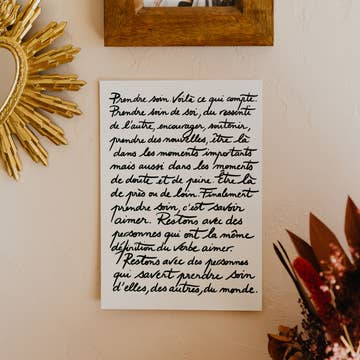 Prendre soin. Voilà ce qui compte.
Prendre soin de soi, du ressenti
de l'autre, encourager, soutenir,
prendre des nouvelles, être là
dans les moments importants
mais aussi dans les moments
de doute et de peine. Être là
de près ou de loin. Finalement
prendre soin, c'est savoir
aimer. Restons avec des
personnes qui ont la même
définition du verbe aimer.
Restons avec des personnes
qui savent prendre soin
d'elles, des autres, du monde.